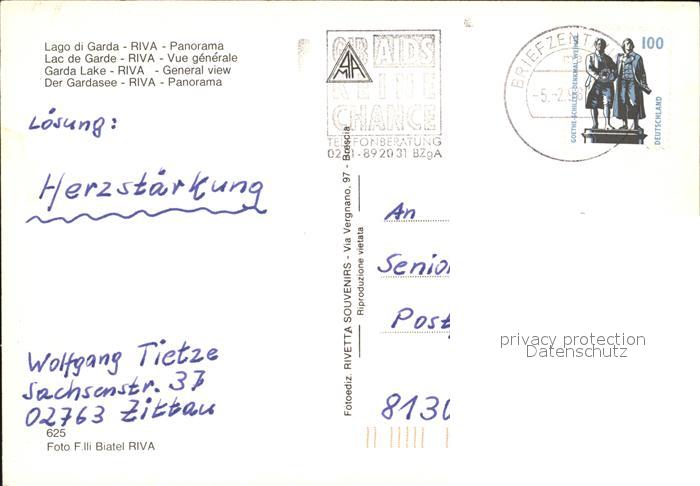 Lago di Garda - RIVA - Panorama
Lac de Garde - RIVA - Vue générale
Garda Lake - RIVA - General view
Der Gardasee - RIVA - Panorama
Lösung:
Herzstärkung
Wolfgang Tietze
Sachsenstr. 37
02763 Zittau
625
Foto F.lli Biatel RIVA
Fotoediz. RIVETTA SOUVENIRS - Via Vergnano, 97 - Brescia
Riproduzione vietata
GIB AIDS
KEINE
CHANCE
TELEFONBERATUNG
0221-892031 BZgA
BRIEFZENTRUM
-5.-2.
100
GOETHE-SCHILLER-DENKMAL WEIMAR
DEUTSCHLAND
An
Senio
Post
8130
privacy protection
Datenschutz